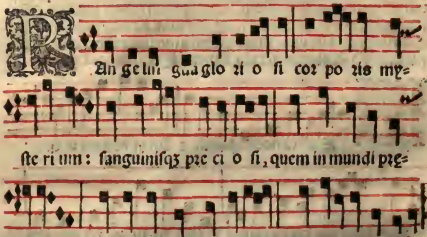 PAn ge lin gua glo ri o si cor po ris my=
ste ri um: sanguinisqꝫ pre ci o si, quem in mundi pre=